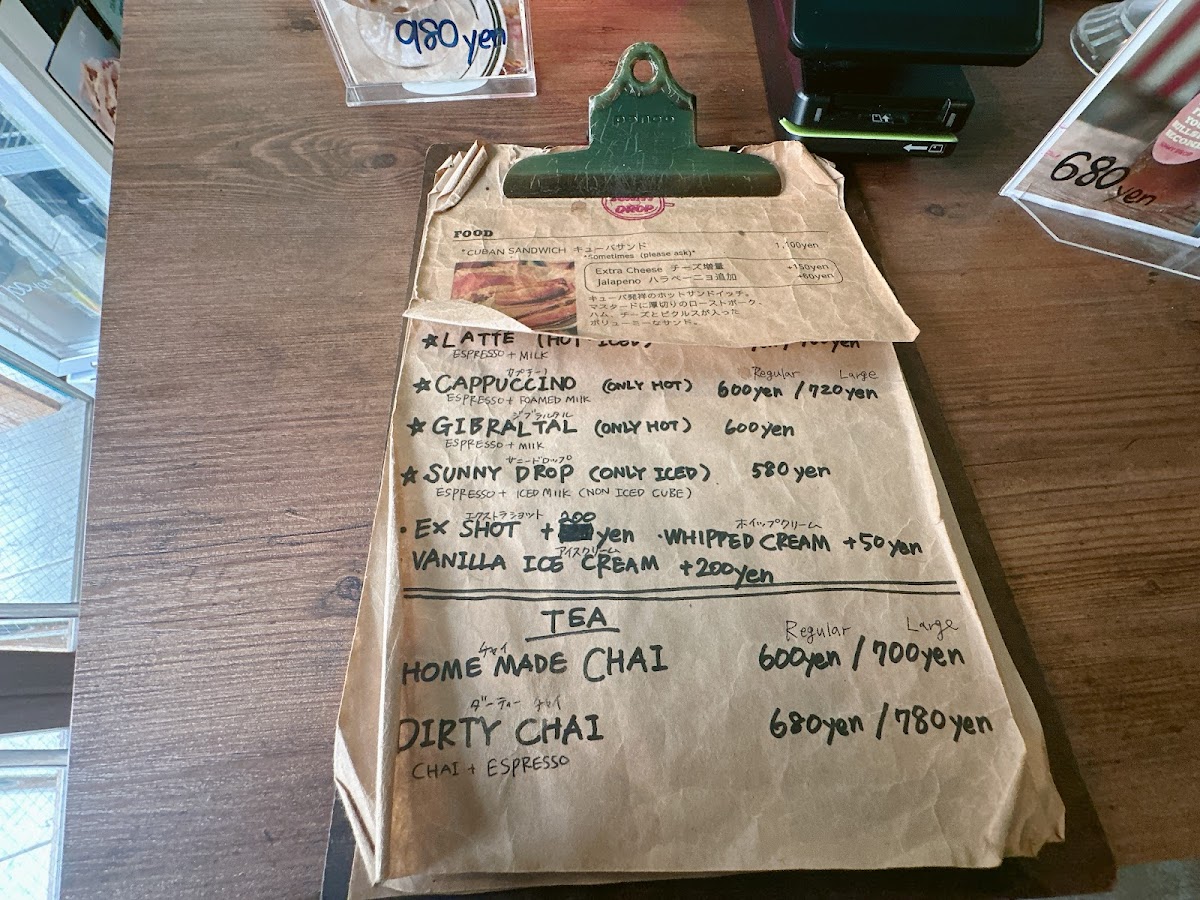 980 yen
680yen
SUNNY
DROP
FOOD
*CUBAN SANDWICH キューバサンド 1,100yen
*sometimes (please ask)*
Extra Cheese チーズ増量 +150yen
Jalapeno ハラペーニョ追加 +60yen
キューバ発祥のホットサンドイッチ。
マスタードに厚切りのローストポーク、
ハム、チーズとピクルスが入った
ボリューミーなサンド。
★LATTE (HOT ICED)
ESPRESSO + MILK
Regular Large
カプチーノ
★CAPPUCCINO (ONLY HOT) 600yen / 720yen
ESPRESSO + FOAMED MILK
ジブラルタル
★GIBRALTAL (ONLY HOT) 600yen
ESPRESSO + MILK
サニードロップ
★SUNNY DROP (ONLY ICED) 580 yen
ESPRESSO + ICED MILK (NON ICED CUBE)
エクストラショット 200 ホイップクリーム
・EX SHOT + yen ・WHIPPED CREAM +50yen
アイスクリーム
VANILLA ICE CREAM +200yen
TEA
Regular Large
チャイ
HOME MADE CHAI 600yen / 700yen
ダーティー チャイ
DIRTY CHAI 680yen / 780yen
CHAI + ESPRESSO